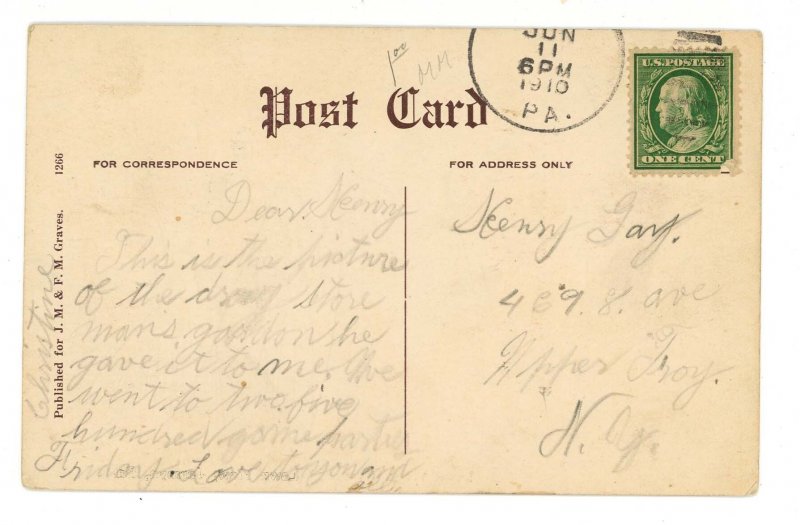 1.00
MM
JUN
11
6PM
1910
PA.
U.S. POSTAGE
ONE CENT
Post Card
FOR CORRESPONDENCE
FOR ADDRESS ONLY
1266
Published for J. M. & F. M. Graves.
Christine
Dear Henry
This is the picture
of the drog store
mans gardon he
gave it to me. We
went to two five
hundred game parties
Friday. Love to you and
all.
Henry Gay.
489. 8. ave
Upper Troy.
N. Y.